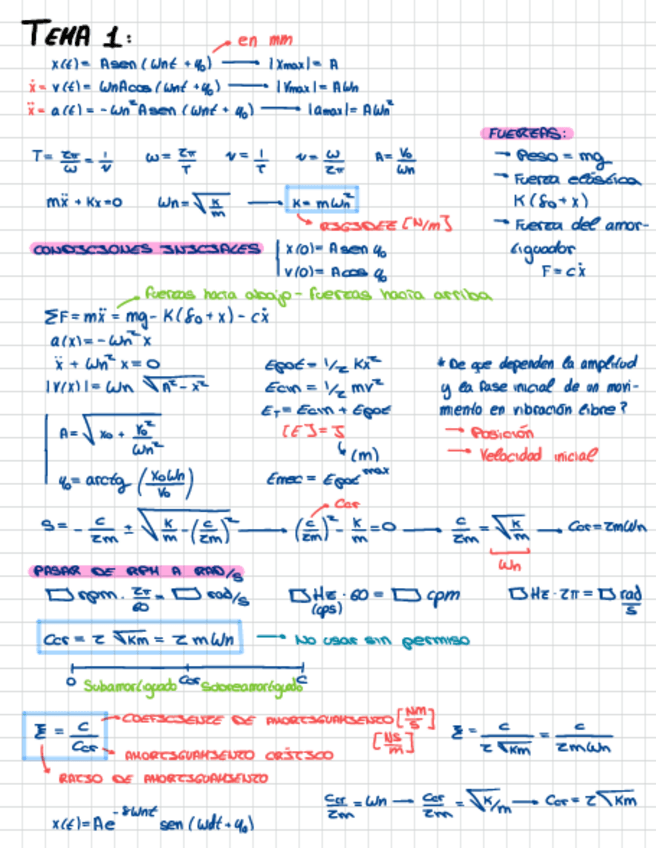 TEMA 1:
en mm
x(t) = A sen (Wnt + φ₀) → |xmax| = A
ẋ = v(t) = WnA cos (Wnt + φ₀) → |Vmax| = AWn
ẍ = a(t) = -Wn² A sen (Wnt + φ₀) → |amax| = AWn²
T = 2π/ω = 1/ν   ω = 2π/T   ν = 1/T   ν = ω/2π   A = V₀/Wn
mẍ + Kx = 0   Wn = √(K/m) → K = mWn²
RIGIDEZ [N/m]
FUERZAS:
→ Peso = mg
→ Fuerza elástica
K (δ₀ + x)
→ Fuerza del amor-
tiguador
F = cẋ
CONDICIONES INICIALES
x(0) = A sen φ₀
v(0) = A cos φ₀
fuerzas hacia abajo - fuerzas hacia arriba
ΣF = mẍ = mg - K(δ₀ + x) - cẋ
a(x) = -Wn² x
ẍ + Wn² x = 0
|V(x)| = Wn √(A² - x²)
A = √(x₀ + V₀²/Wn²)
φ₀ = arctg (x₀Wn/V₀)
Epot = 1/2 Kx²
Ecin = 1/2 mv²
ET = Ecin + Epot
[E] = J
(m)
Emec = Epot max
* De que dependen la amplitud
y la fase inicial de un movi-
miento en vibración libre?
→ Posición
→ Velocidad inicial
Ccr
S = -c/2m ± √(K/m - (c/2m)²) → (c/2m)² - K/m = 0 → c/2m = √(K/m) → Ccr = 2mWn
Wn
PASAR DE RPM A RAD/S
□ rpm · 2π/60 = □ rad/s   □ Hz · 60 = □ cpm   □ Hz · 2π = □ rad/s
(cps)
Ccr = 2 √Km = 2mWn → No usar sin permiso
0   Ccr   C
Subamortiguado   Sobreamortiguado
ξ = c/Ccr
COEFICIENTE DE AMORTIGUAMIENTO [NM/S]
[NS/m]
AMORTIGUAMIENTO CRÍTICO
RATIO DE AMORTIGUAMIENTO
ξ = c/(2√Km) = c/(2mWn)
Ccr/2m = Wn → Ccr/2m = √K/m → Ccr = 2√Km
x(t) = Ae^(-δWnt) sen (Wdt + φ₀)